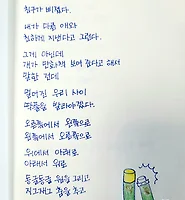 친구가 삐졌다.
내가 다른 애와
친하게 지낸다고 그런다.
그게 아닌데
걔가 만화책 보여 준다고 해서
말한 건데
멀어진 우리 사이
딱풀을 발라야겠다.
오른쪽에서 왼쪽으로
왼쪽에서 오른쪽으로
위에서 아래로
아래서 위로
동글동글 원을 그리고
지그재그 춤을 추고